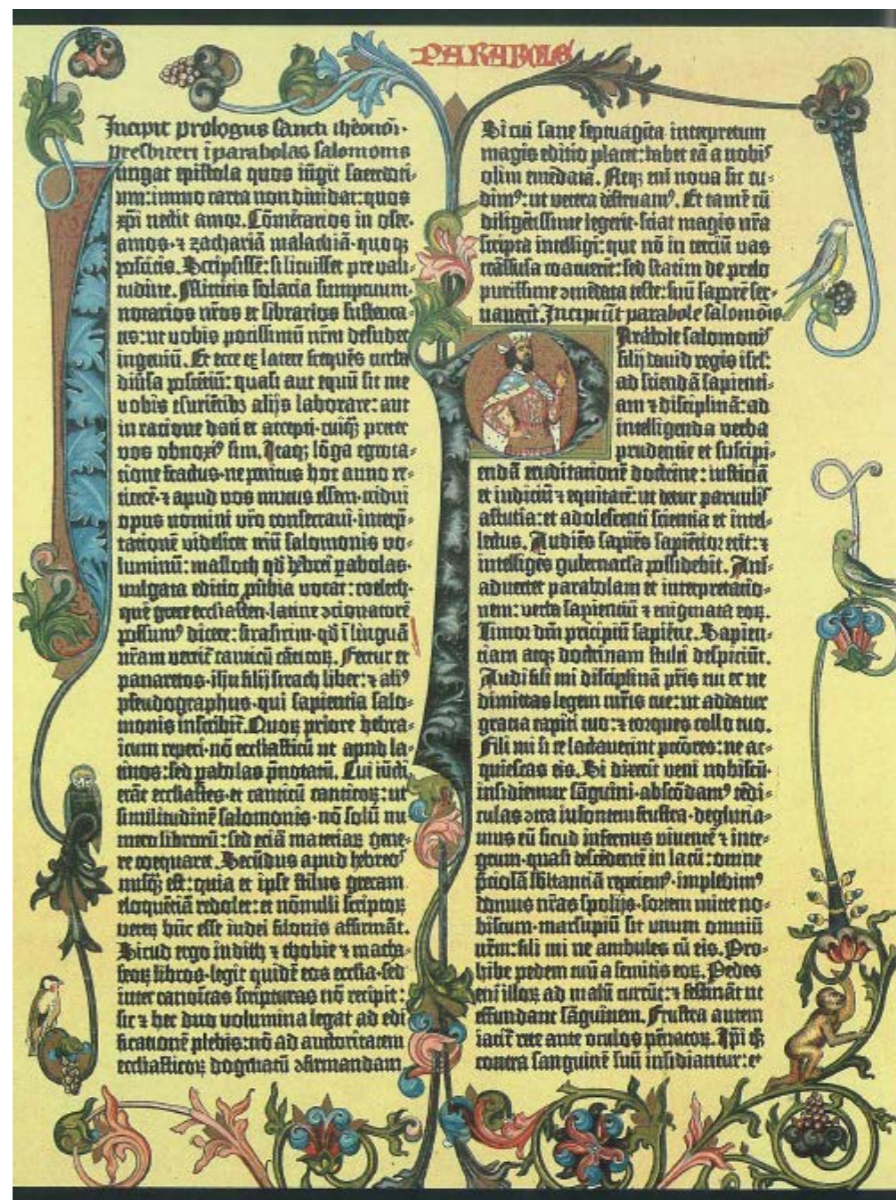 PARABOLE
Incipit prologus sancti iheronimi
presbiteri i parabolas salomonis
Iungat epistola quos iūgit sacerdoti-
um: immo carta non diuidat: quos
xp̄i nectit amor. Cōmētarios in osee.
amos. ⁊ zachariā malachiā. quoq̨
poscitis. Scripsissē: si licuisset pre vali-
tudine. Mittitis solacia sumptuum.
notarios nr̄os et librarios sustenta-
tis: ut uobis potissimū nr̄m desudet
ingeniū. Et ecce ex latere frequēs turba
diūsa poscētiū: quasi aut equū sit me
uobis esuriētibꝫ alijs laborare: aut
in racione dati et accepti. cuiq̄ᷓ preter
vos obnoxiꝰ sim. Itaqꝫ lōga egrota-
tione fractus. ne penitus hoc anno re-
ticerē. ⁊ apud vos mutus essem. tridui
opus nomini vr̄o consecraui. interp̄-
tationē videlicet triū salomonis vo-
luminū: masloth qd̄ hebrei pabolas.
vulgata editio puͥbia vocat: coeleth.
quē grece ecclesiasten. latine ↄcionatorē
possumꝰ dicere: sirasirim. qd̄ ī linguā
nr̄am vertit̄ canticū cāticoꝝ. Fertur et
panaretos. ihu filij sirach liber: ⁊ aliꝰ
pseudographus. qui sapientia salo-
monis inscribit̄. Quoꝝ priore hebra-
icum reperi. nō ecclesiasticū ut apud la-
tinos: sed pabolas p̄notatū. Cui iūcti
erāt ecclesiastes. et canticū canticoꝝ: ut
similitudinē salomonis. nō solū nu-
mero librorū: sed eciā materiaꝝ gene-
re coequaret. Secūdus apud hebreos
nusqᷓ est: quia et ipse stilus grecam
eloquētiā redolet: et nōnulli scriptoꝝ
veteꝝ hūc esse iudei filonis affirmāt.
Sicud ergo iudith ⁊ thobie ⁊ macha-
beoꝝ libros. legit quidē eos ecclesia. sed
inter canoicas scripturas nō recipit:
sic ⁊ hec duo volumina legat ad edi-
ficationē plebis: nō ad auctoritatem
ecclesiasticoꝝ dogmatū ↄfirmandam.
Si cui sane septuagīta interpretum
magis editio placet: habet eā a nobis
olim emēdatā. Neqꝫ eni noua sic cu-
dimꝰ: ut vetera destruamꝰ. Et tamē cū
diligētissime legerit. sciat magis nr̄a
scripta intelligi: que nō in terciū vas
trāsfusa coacuerīt: sed statim de prelo
purissime ↄmēdata teste: suū saporē ser-
uauerīt. Incipiūt parabole salomōis
Parabole salomonis
filij dauid regis isrl̄:
ad sciendā sapienti-
am ⁊ disciplinā: ad
intelligenda verba
prudentie et suscipi-
endā eruditationē doctrine: iusticiā
et iudiciū ⁊ equitatē: ut detur paruulis
astutia: et adolescenti sciencia et intel-
lectus. Audiēs sapiēs sapiētior erit: ⁊
intelligēs gubernacla possidebit. Ani-
aduertet parabolam et interpretatio-
nem: verba sapientiū ⁊ enigmata eoꝝ.
Timor dn̄i principiū sapiētie. Sapien-
tiam atqꝫ doctrinam stulti despiciūt.
Audi fili mi disciplinā pr̄is tui et ne
dimittas legem mr̄is tue: ut addatur
gracia capiti tuo: ⁊ torques collo tuo.
Fili mi si te lactauerint pctōres: ne ac-
quiescas eis. Si dixerīt veni nobiscū.
insidiemur sāguini. abscōdamꝰ tēdi-
culas ↄtra insontem frustra. deglutia-
mus eū sicud infernus viuentē ⁊ inte-
grum. quasi descēdentē in lacū: omne
p̄ciosā sb̄stantiā reperiemꝰ. implebimꝰ
domus nr̄as spolijs. sortem mitte no-
biscum. marsupiū sit unum omniū
nr̄m: fili mi ne ambules cū eis. Pro-
hibe pedem tuū a semitis eoꝝ. Pedes
eni illoꝝ ad malū currūt: ⁊ festināt ut
effundant sāguinem. Frustra autem
iacit̄ rete ante oculos pēnatoꝝ. Ipi qꝫ
contra sanguinē suū insidiantur: et